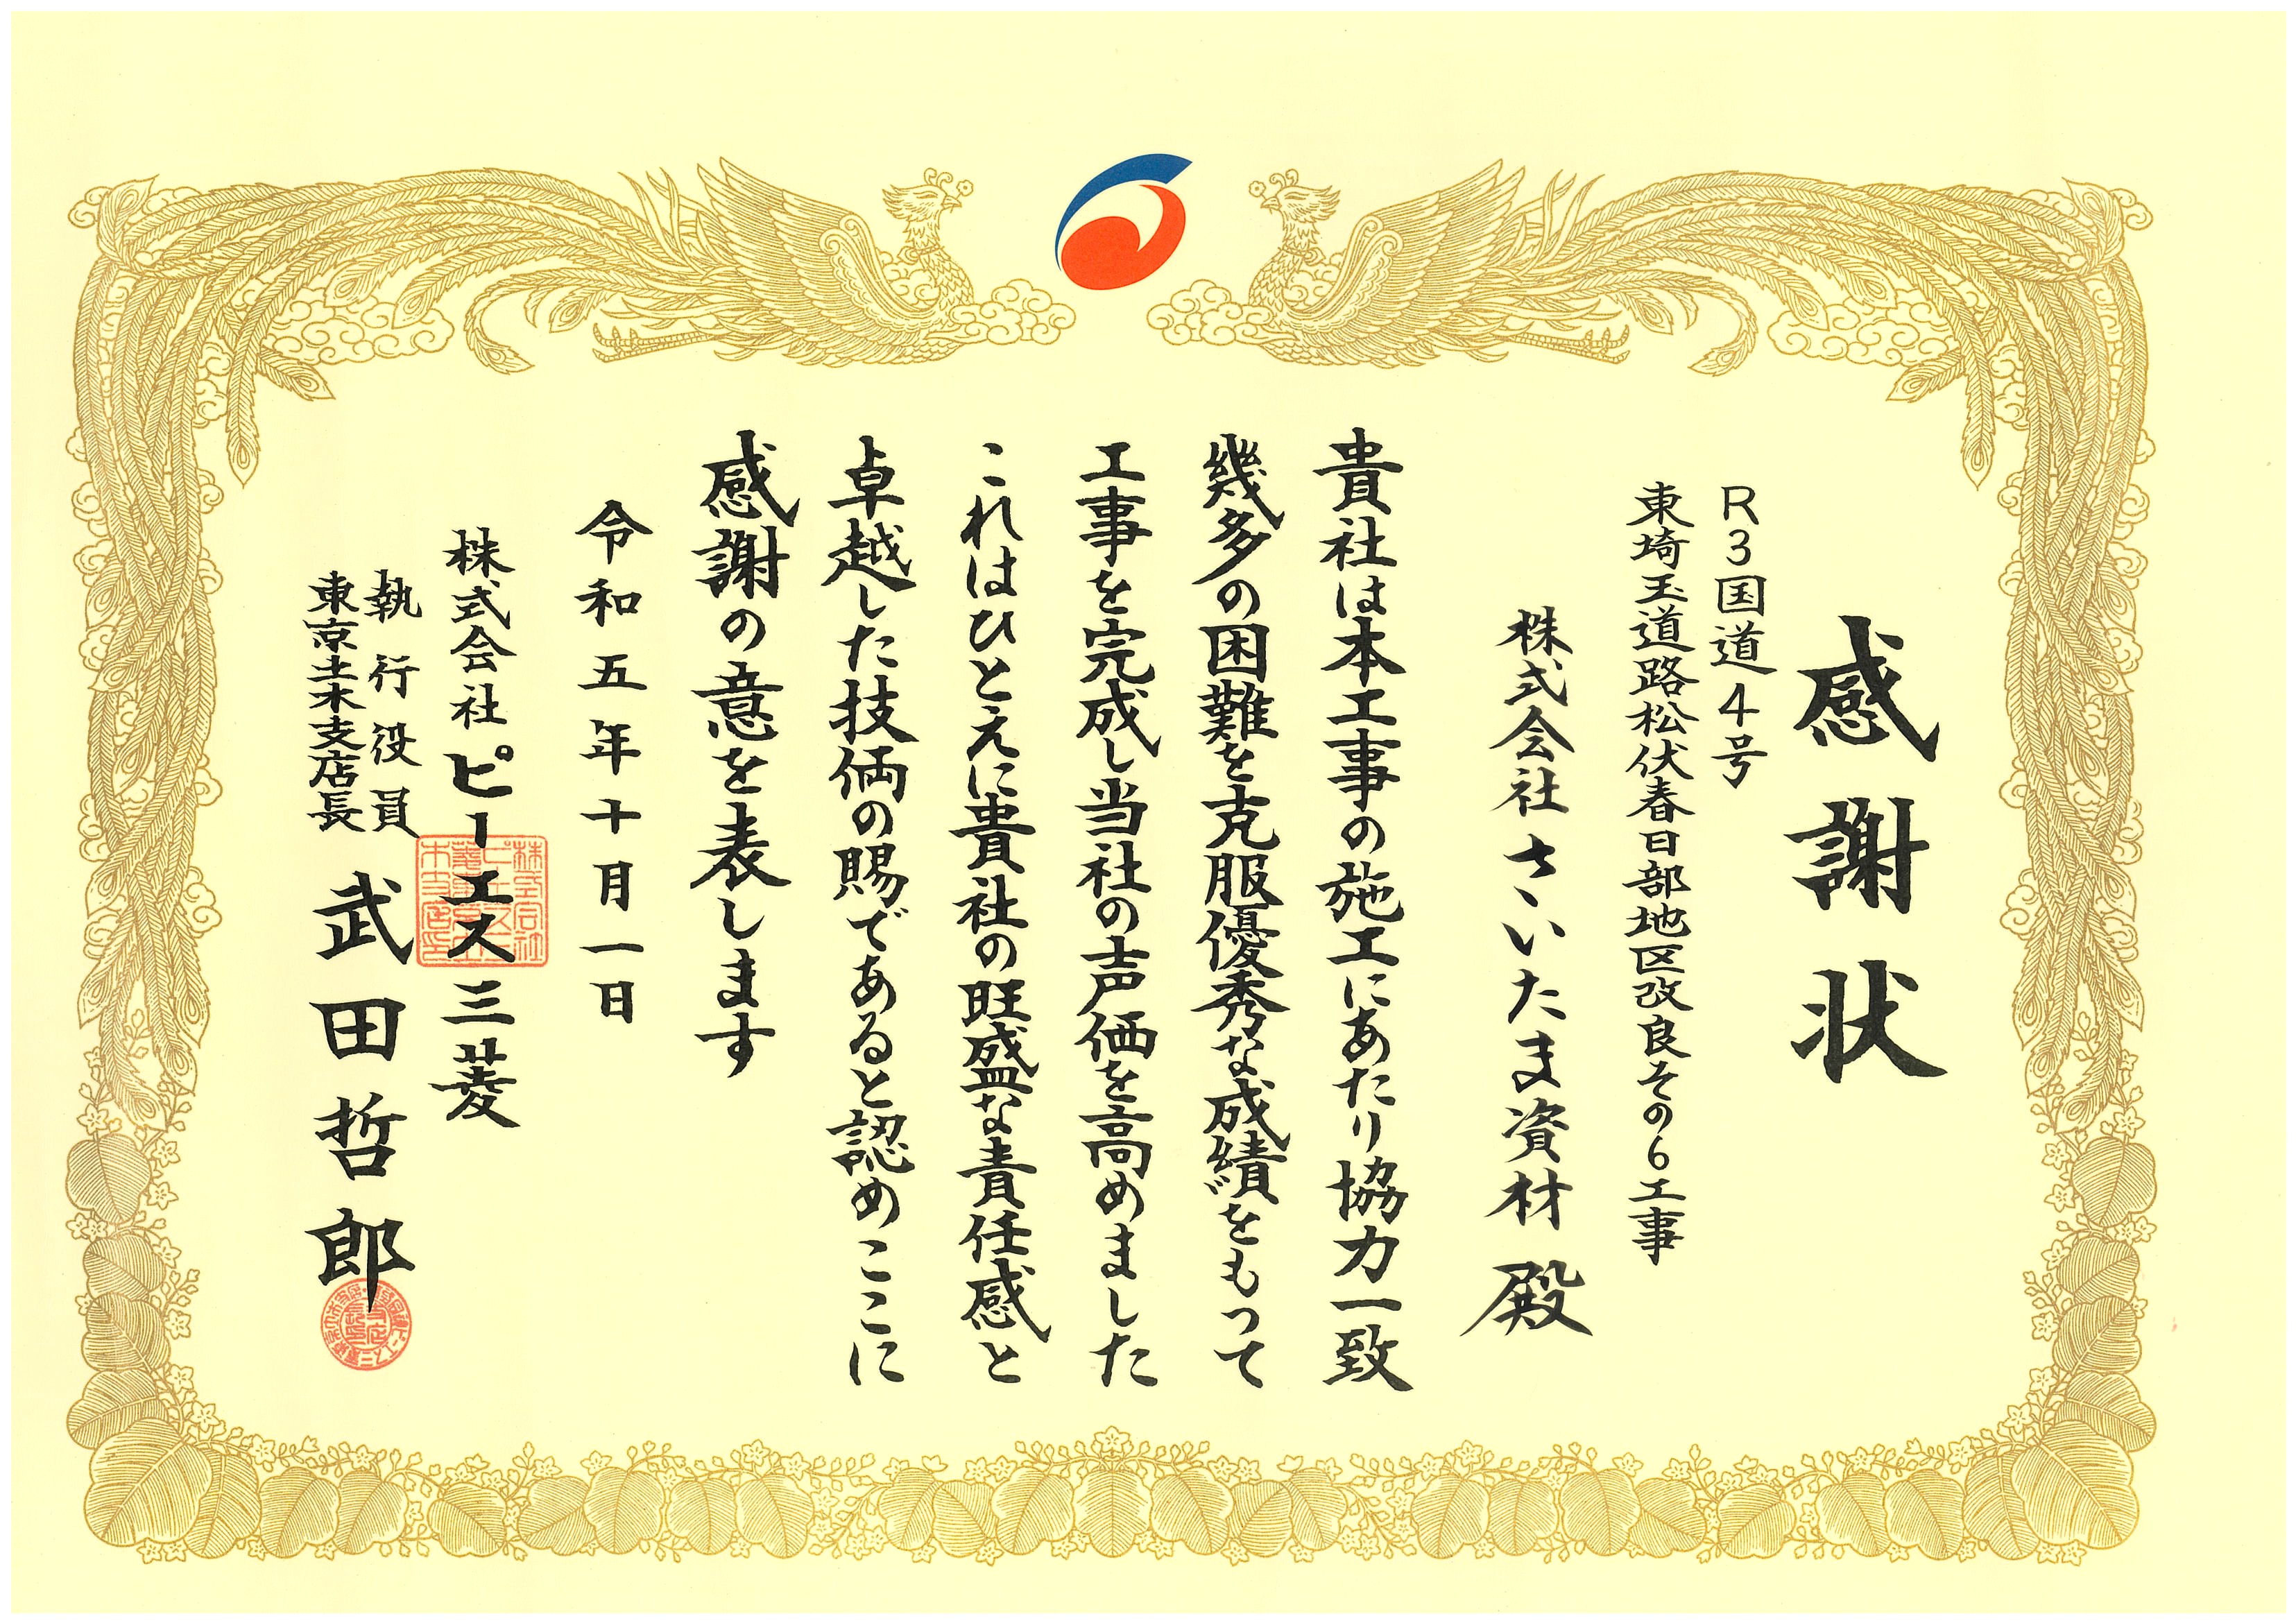 感謝状
R3国道4号
東埼玉道路松伏春日部地区改良その6工事
株式会社さいたま資材 殿
貴社は本工事の施工にあたり協力一致
幾多の困難を克服優秀な成績をもって
工事を完成し当社の声価を高めました
これはひとえに貴社の旺盛な責任感と
卓越した技倆の賜であると認めここに
感謝の意を表します
令和五年十月一日
株式会社ピーエス三菱
執行役員
東京土木支店長
武田哲郎